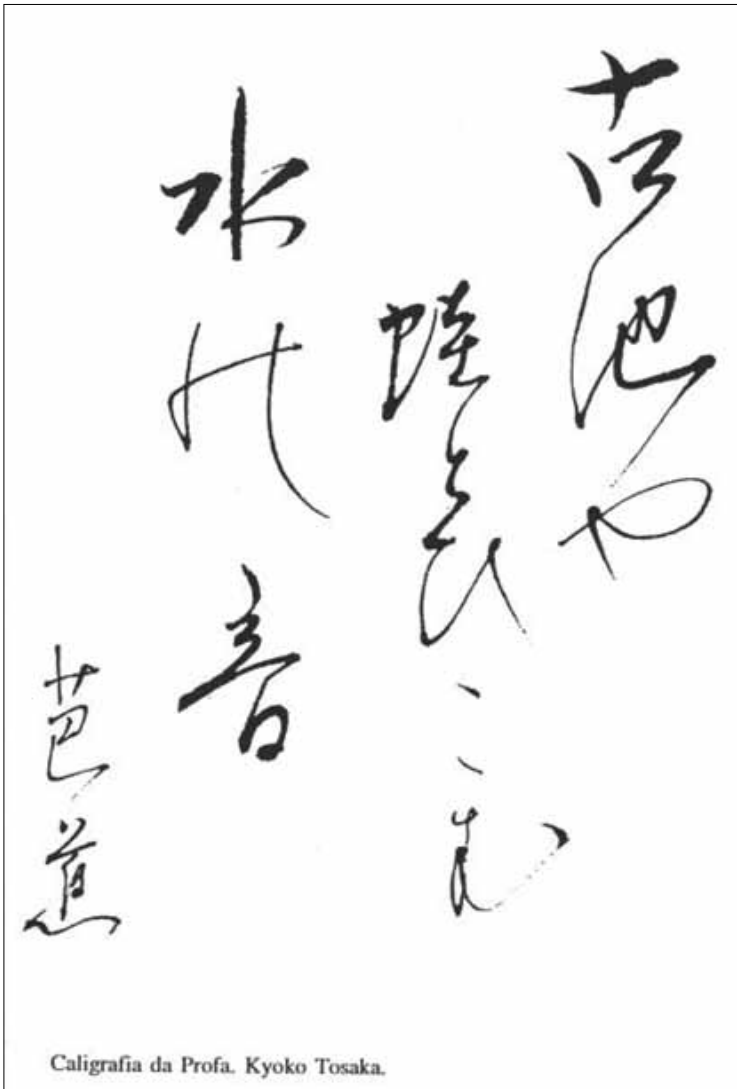 古池や
蛙とひこむ
水の音
芭蕉
Caligrafia da Profa. Kyoko Tosaka.